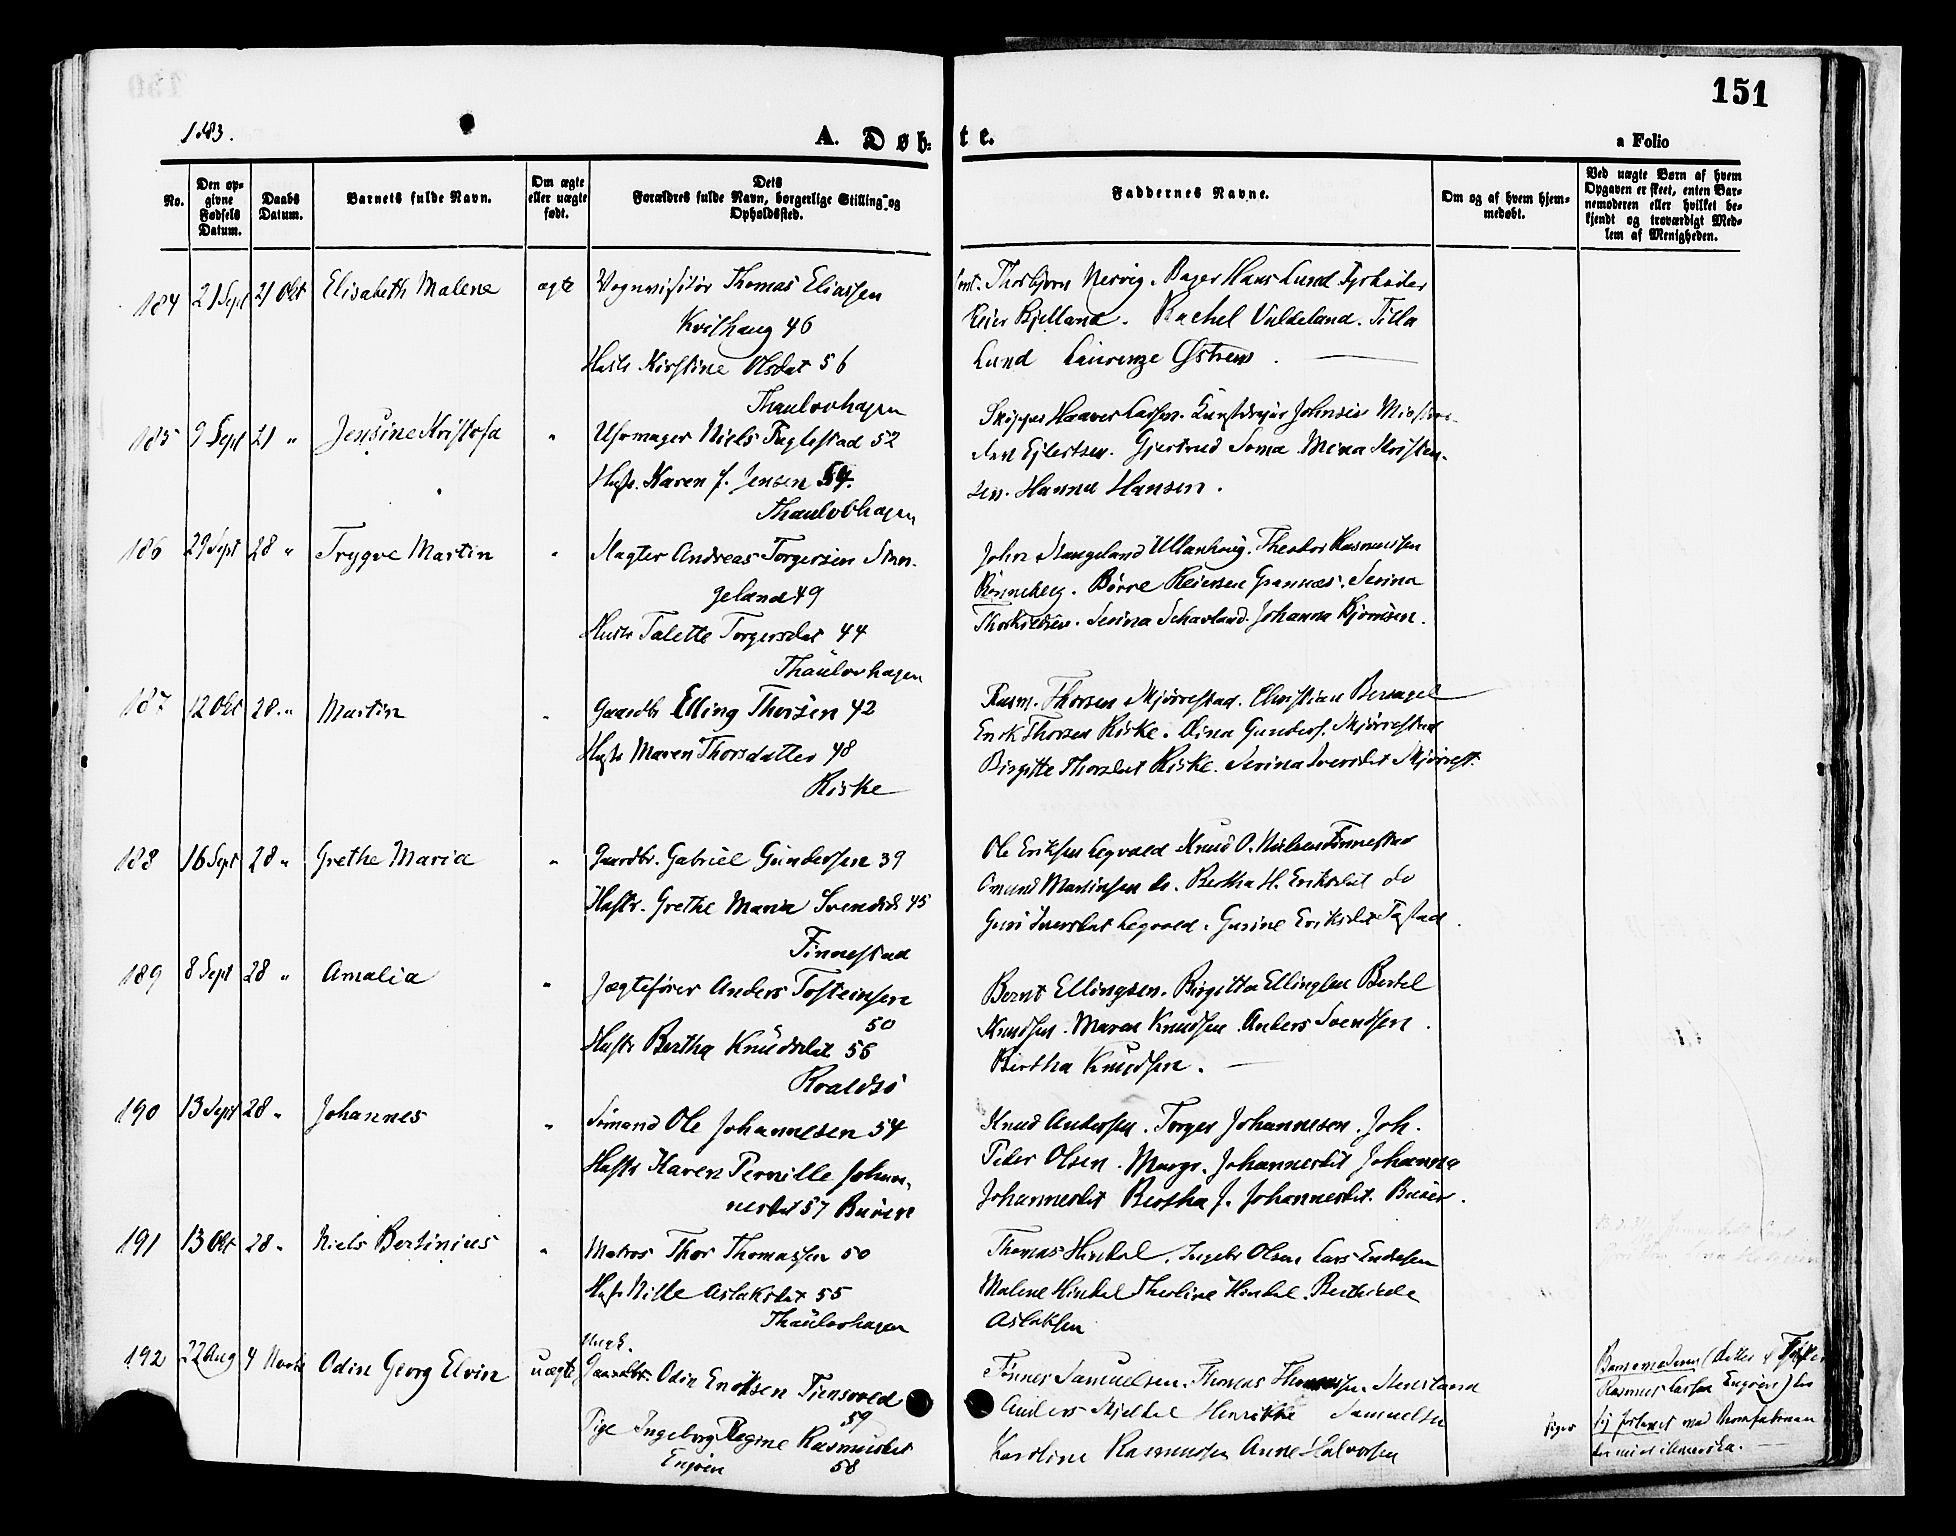 151
1883.
A. Døb- te.
a Folio
No.
Den op-
givne
Fødsels
Datum.
Daabs
Datum.
Barnets fulde Navn.
Om ægte
eller uægte
født.
Dets
Forældres fulde Navn, borgerlige Stilling og
Opholdssted.
Faddernes Navne.
Om og af hvem hjem-
medøbt.
Ved uægte Børn af hvem
Opgaven er skeet, enten Bar-
nemoderen eller hvilket be-
kjendt og troværdigt Med-
lem af Menigheden.
184 21 Sept 21 Okt Elisabeth Malene ægte Vognvisitør Thomas Eliassen
Kvilhaug 46
Hustr Kirstine Olsdat 56
Thaulovhagen
Thorbjørn Nervig. Bager Hans Lund Fyrbøder
Reier Bjelland. Rachel Vuldeland. Tilla
Lund Laurenze Østrem.
185 9 Sept 21 " Jensine Kristofa " Uhrmager Niels Fuglestad 52
Hustr. Karen J. Jensen 54.
Thaulovhagen
Skipper Haaver Larsen. Johnsen
Ejlertsen. Gjertrud Soma. Mina Kristen-
sen. Hanna Hansen.
186 29 Sept 28 " Trygve Martin " Slagter Andreas Torgersen Stan-
geland 49
Hustr Talette Torgersdat 44
Thaulovhagen
John Stangeland Ullanhaug. Theodor Rasmussen
Rønneberg. Børre Reiersen Grannæs. Serina
Thorkildsen. Serina Schavland. Johanna Bjørnsen.
187 12 Okt 28 " Martin " Gaardbr Elling Thorsen 42
Hustr Maren Thorsdatter 48
Riske
Rasm. Thorsen Mjørrestad. Christian Bersagel
Enok Thorsen Riske. Dina Gunders. Mjørrestad
Birgitte Thorsdat Riske. Serina Iversdat Mjørrest.
188 16 Sept 28 " Grethe Maria " Gaardbr. Gabriel Gundersen 39
Hustr. Grethe Maria Svendsd 45
Finnestad
Ole Eriksen Legvold Knud O. Nielsen Finnestad
Omund Martinsen do. Bertha H. Eriksdat do
Guri Iversdat Legvold. Gurine Eriksdat Tastad.
189 8 Sept 28 " Amalia " Jægtefører Anders Tosteinsen
50
Hustr Bertha Knudsdat 56
Roaldsø
Bernt Ellingsen. Birgitta Ellingsen Bertel
Knudsen. Maren Knudsen. Anders Svendsen.
Bertha Knudsen.
190 13 Sept 28 " Johannes " Sømand Ole Johannesen 54
Hustr Karen Pernille Johan-
nesdat 57 Buøen
Knud Andersen. Torger Johannesen. Joh.
Peder Olsen. Margr. Johannesdat Johanna
Johannesdat Bertha J. Johannesdat. Buøen.
191 13 Okt 28 " Niels Bertinius " Matros Thor Thomassen 50
Hustr Nille Aslaksdat 55
Thaulovhagen
Thomas Hinkel. Ingebr Olsen Lars Endresen
Malene Hinkel Thorline Hinkel. Berthilde
Aslaksen
192 22 Aug 4 Novbr Odin Georg Elvin uægte Ungk.
Gaardbr. Odin Enoksen Tjensvold
59
Pige Ingeborg Regine Rasmusdat
Engøen 58
Tønnes Samuelsen. Thomas Thomassen
Anders Mjelkel Henrikke Samuelsen
Karoline Rasmussen Anne Halvorsen
Barnemoderen
Rasmus Larsen Engøen
siger sig forlovet med Barnefaderen
der nu er i Amerika.